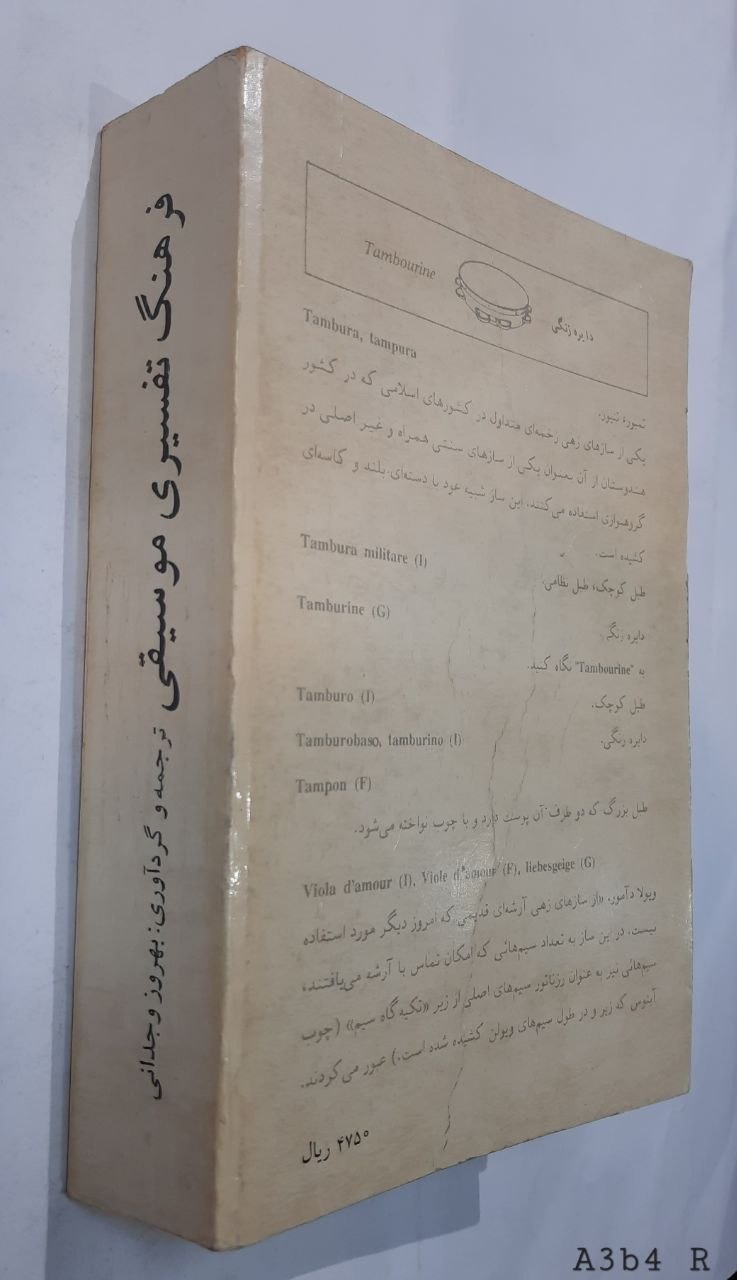 فرهنگ تفسیری موسیقی ترجمه و گردآوری: بهروز وجدانی
Tambourine دایره زنگی
Tambura, tampura
تمبوره تنبور.
یکی از سازهای زهی زخمه‌ای متداول در کشورهای اسلامی که در کشور
هندوستان از آن بعنوان یکی از سازهای سنتی همراه و غیر اصلی در
گروهنوازی استفاده می‌کنند. این ساز شبیه عود با دسته‌ای بلند و کاسه‌ای
کشیده است.
Tambura militare (I)
طبل کوچک، طبل نظامی.
Tamburine (G)
دایره زنگی
به "Tambourine" نگاه کنید.
Tamburo (I)
طبل کوچک.
Tamburobaso, tamburino (I)
دایره زنگی.
Tampon (F)
طبل بزرگ که دو طرف آن پوست دارد و با چوب نواخته می‌شود.
Viola d'amour (I), Viole d'amour (F), liebesgeige (G)
ویولا دآمور، «از سازهای زهی آرشه‌ای قدیمی که امروز دیگر مورد استفاده
نیست. در این ساز به تعداد سیم‌هائی که امکان تماس با آرشه می‌یافتند،
سیم‌هائی نیز به عنوان رزناتور سیم‌های اصلی از زیر «تکیه گاه سیم» (چوب
آبنوس که زیر و در طول سیم‌های ویولن کشیده شده است.) عبور می‌کردند.
۴۷۵۰ ریال
A3b4 R